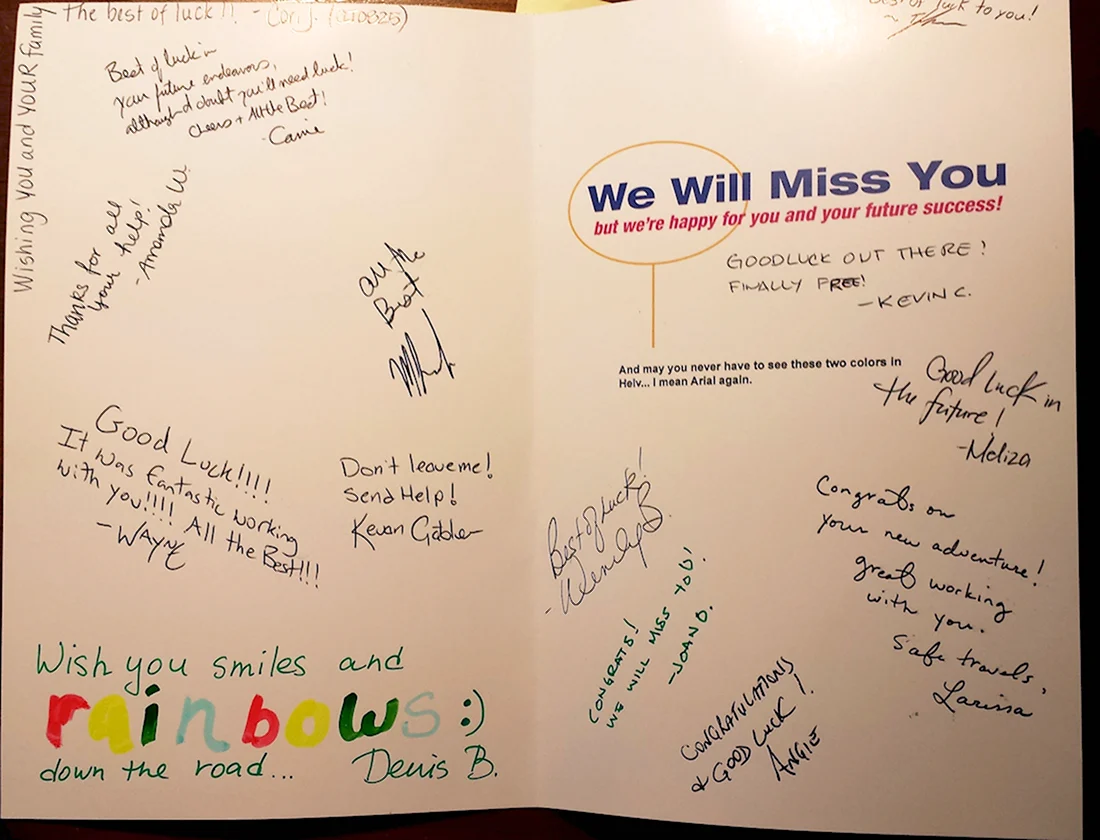 Wishing you and your family
The best of luck!! - Cori J. (040825)
Best of luck in
your future endeavors,
although I doubt you'll need luck!
Cheers + All the Best!
-Carrie
Thanks for all
your help!
-Amanda W.
All the
Best
Good Luck!!!!
It was fantastic working
with you!!!! All the Best!!!
-WAYNE
Don't leave me!
Send Help!
Kevan Gabler
Wish you smiles and
rainbows :)
down the road... Denis B.
luck to you!
We Will Miss You
but we're happy for you and your future success!
GOODLUCK OUT THERE!
FINALLY FREE!
-KEVIN C.
And may you never have to see these two colors in
Helv... I mean Arial again.
Good Luck in
the future!
-Meliza
Best of luck!
-Wendy B.
CONGRATS!
WE WILL MISS YOU!
-JOAN D.
Congrats on
your new adventure!
great working
with you.
Safe travels,
Larissa
CONGRATULATIONS
& GOOD LUCK!
ANGIE